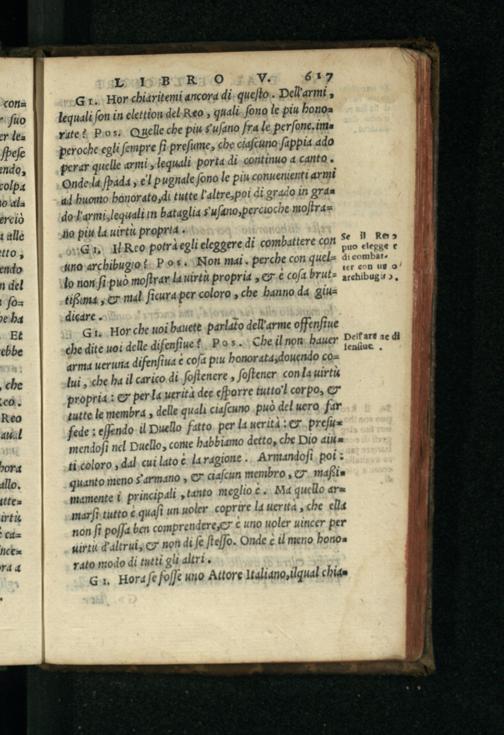 LIBRO V. 617
GI. Hor chiaritemi ancora di questo. Dell'armi,
lequali son in elettion del Reo, quali sono le piu hono=
rate? POS. Quelle che piu s'usano fra le persone. im=
peroche egli sempre si presume, che ciascuno sappia ado
perar quelle armi, lequali porta di continuo a canto.
Onde la spada, e'l pugnale sono le piu conuenienti armi
ad huomo honorato, di tutte l'altre, poi di grado in gra=
do l'armi, lequali in bataglia s'usano, percioche mostra=
no piu la uirtù propria.
GI. Il Reo potrà egli eleggere di combattere con
uno archibugio? POS. Non mai. perche con quel=
lo non si può mostrar la uirtù propria, & è cosa brut=
tißima, & mal sicura per coloro, che hanno da giu=
dicare.
Se il Reo
puo elegge e
di combat-
ter con uno
archibugio.
GI. Hor che uoi hauete parlato dell'arme offensiue
che dite uoi delle difensiue? POS. Che il non hauer
arma ueruna difensiua è cosa piu honorata, douendo co=
lui, che ha il carico di sostenere, sostener con la uirtù
propria: & per la uerità dee esporre tutto'l corpo, &
tutte le membra, delle quali ciascuno può del uero far
fede: essendo il Duello fatto per la uerità: & presu=
mendosi nel Duello, come habbiamo detto, che Dio aiu=
ti coloro, dal cui lato è la ragione. Armandosi poi:
quanto meno s'armano, & ciascun membro, & maßi=
mamente i principali, tanto meglio è. Ma quello ar=
marsi tutto è quasi un uoler coprire la uerità, che ella
non si possa ben comprendere, & è uno uoler uincer per
uirtù d'altrui, & non di se stesso. Onde è il meno hono=
rato modo di tutti gli altri.
Dell'arme di
fensiue.
GI. Hora se fosse uno Attore Italiano, ilqual chia=
con=
suo
er le=
spese
endo,
colpa
no al=
erciò
a alle
etto,
endo
del
so=
be ha
Et
rebbe
, che
Reo.
Reo
hora
allo.
atte=
irtù
ca=
ora a